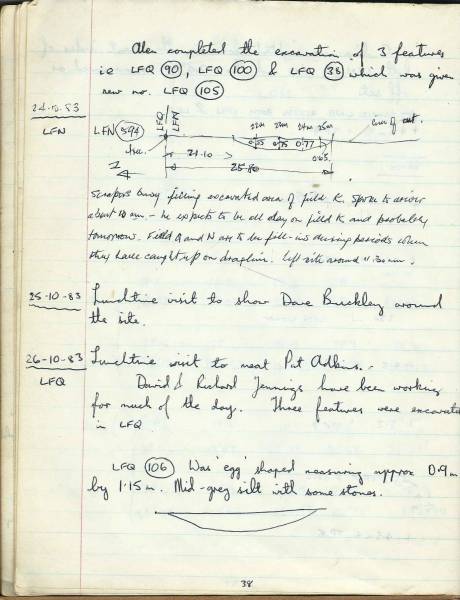 Alan completed the excavation of 3 features
i.e LFQ 90, LFQ 100 & LFQ 38 which was given
new no. LFQ 105
24-10-83
LFN
LFQ
LFN
LFN 594
22m 23m 24m 25m
line of cut.
0.55 0.75 0.77
0.65
21.10
25.80
Scrapers busy filling excavated area of field K. Spoke to driver
about 10 am - he expects to be all day on field K and probably
tomorrow. Field Q and N are to be fill-in during periods when
they have caught up on dragline. Left site around 11.30am.
25-10-83
Lunchtime visit to show Dave Buckley around
the site.
26-10-83
Lunchtime visit to meet Pat Adkins.
LFQ
David & Richard Jennings have been working
for much of the day. Three features were excavated
in LFQ
LFQ 106 Was 'egg' shaped measuring approx 0.9m
by 1.15m. Mid-grey silt with some stones.
38